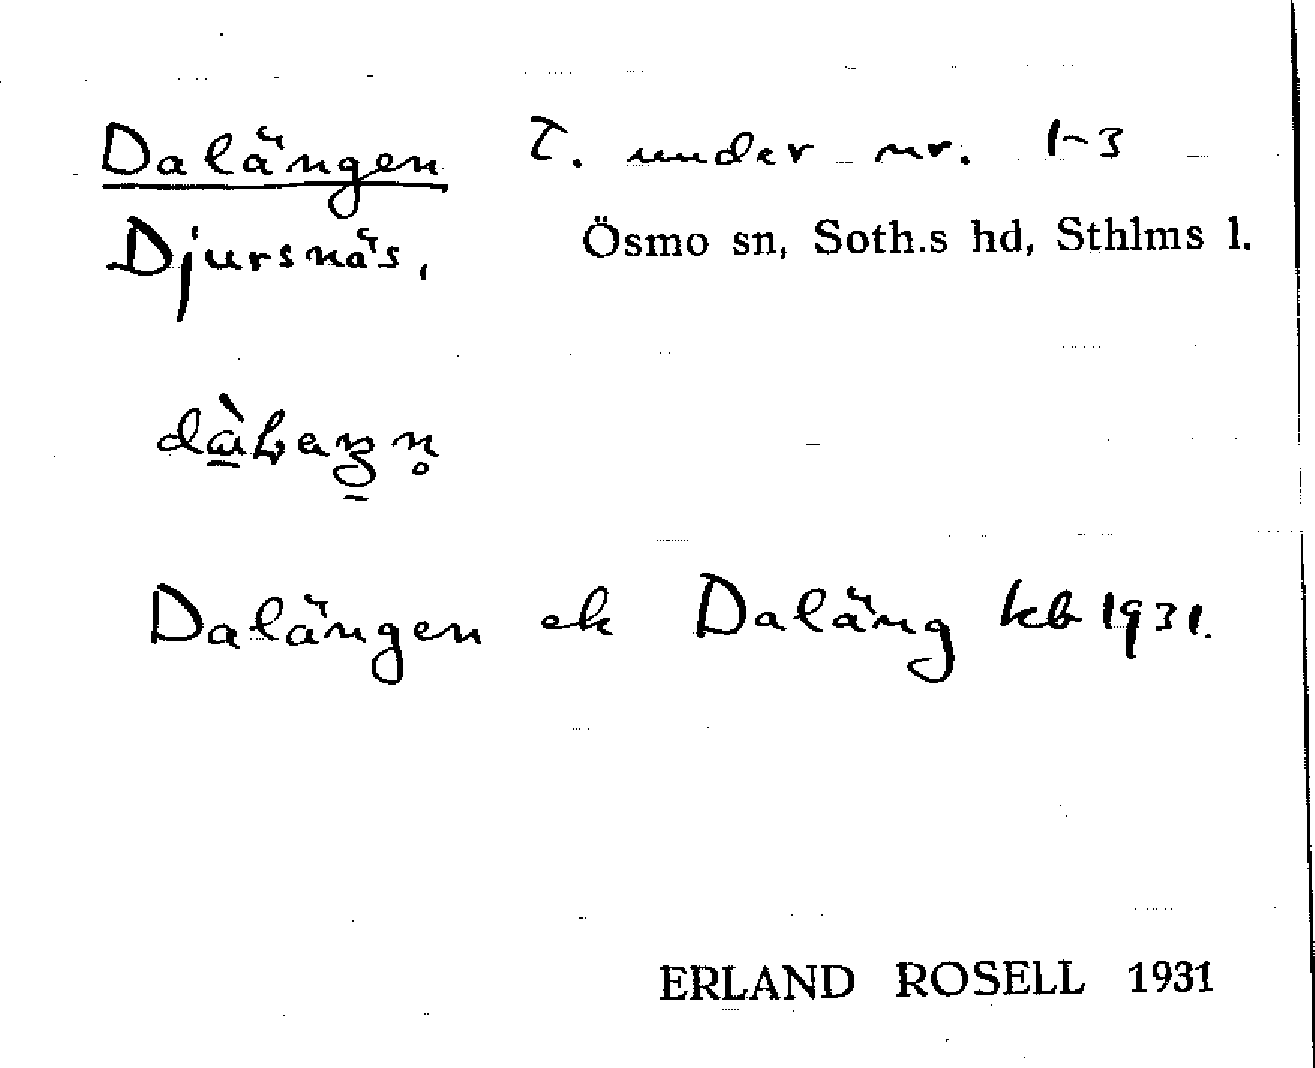 Dalängen T. under nr. 1-3
Djursnäs. Ösmo sn, Soth.s hd, Sthlms l.
Dalängen ek Daläng kb 1931.
ERLAND ROSELL 1931